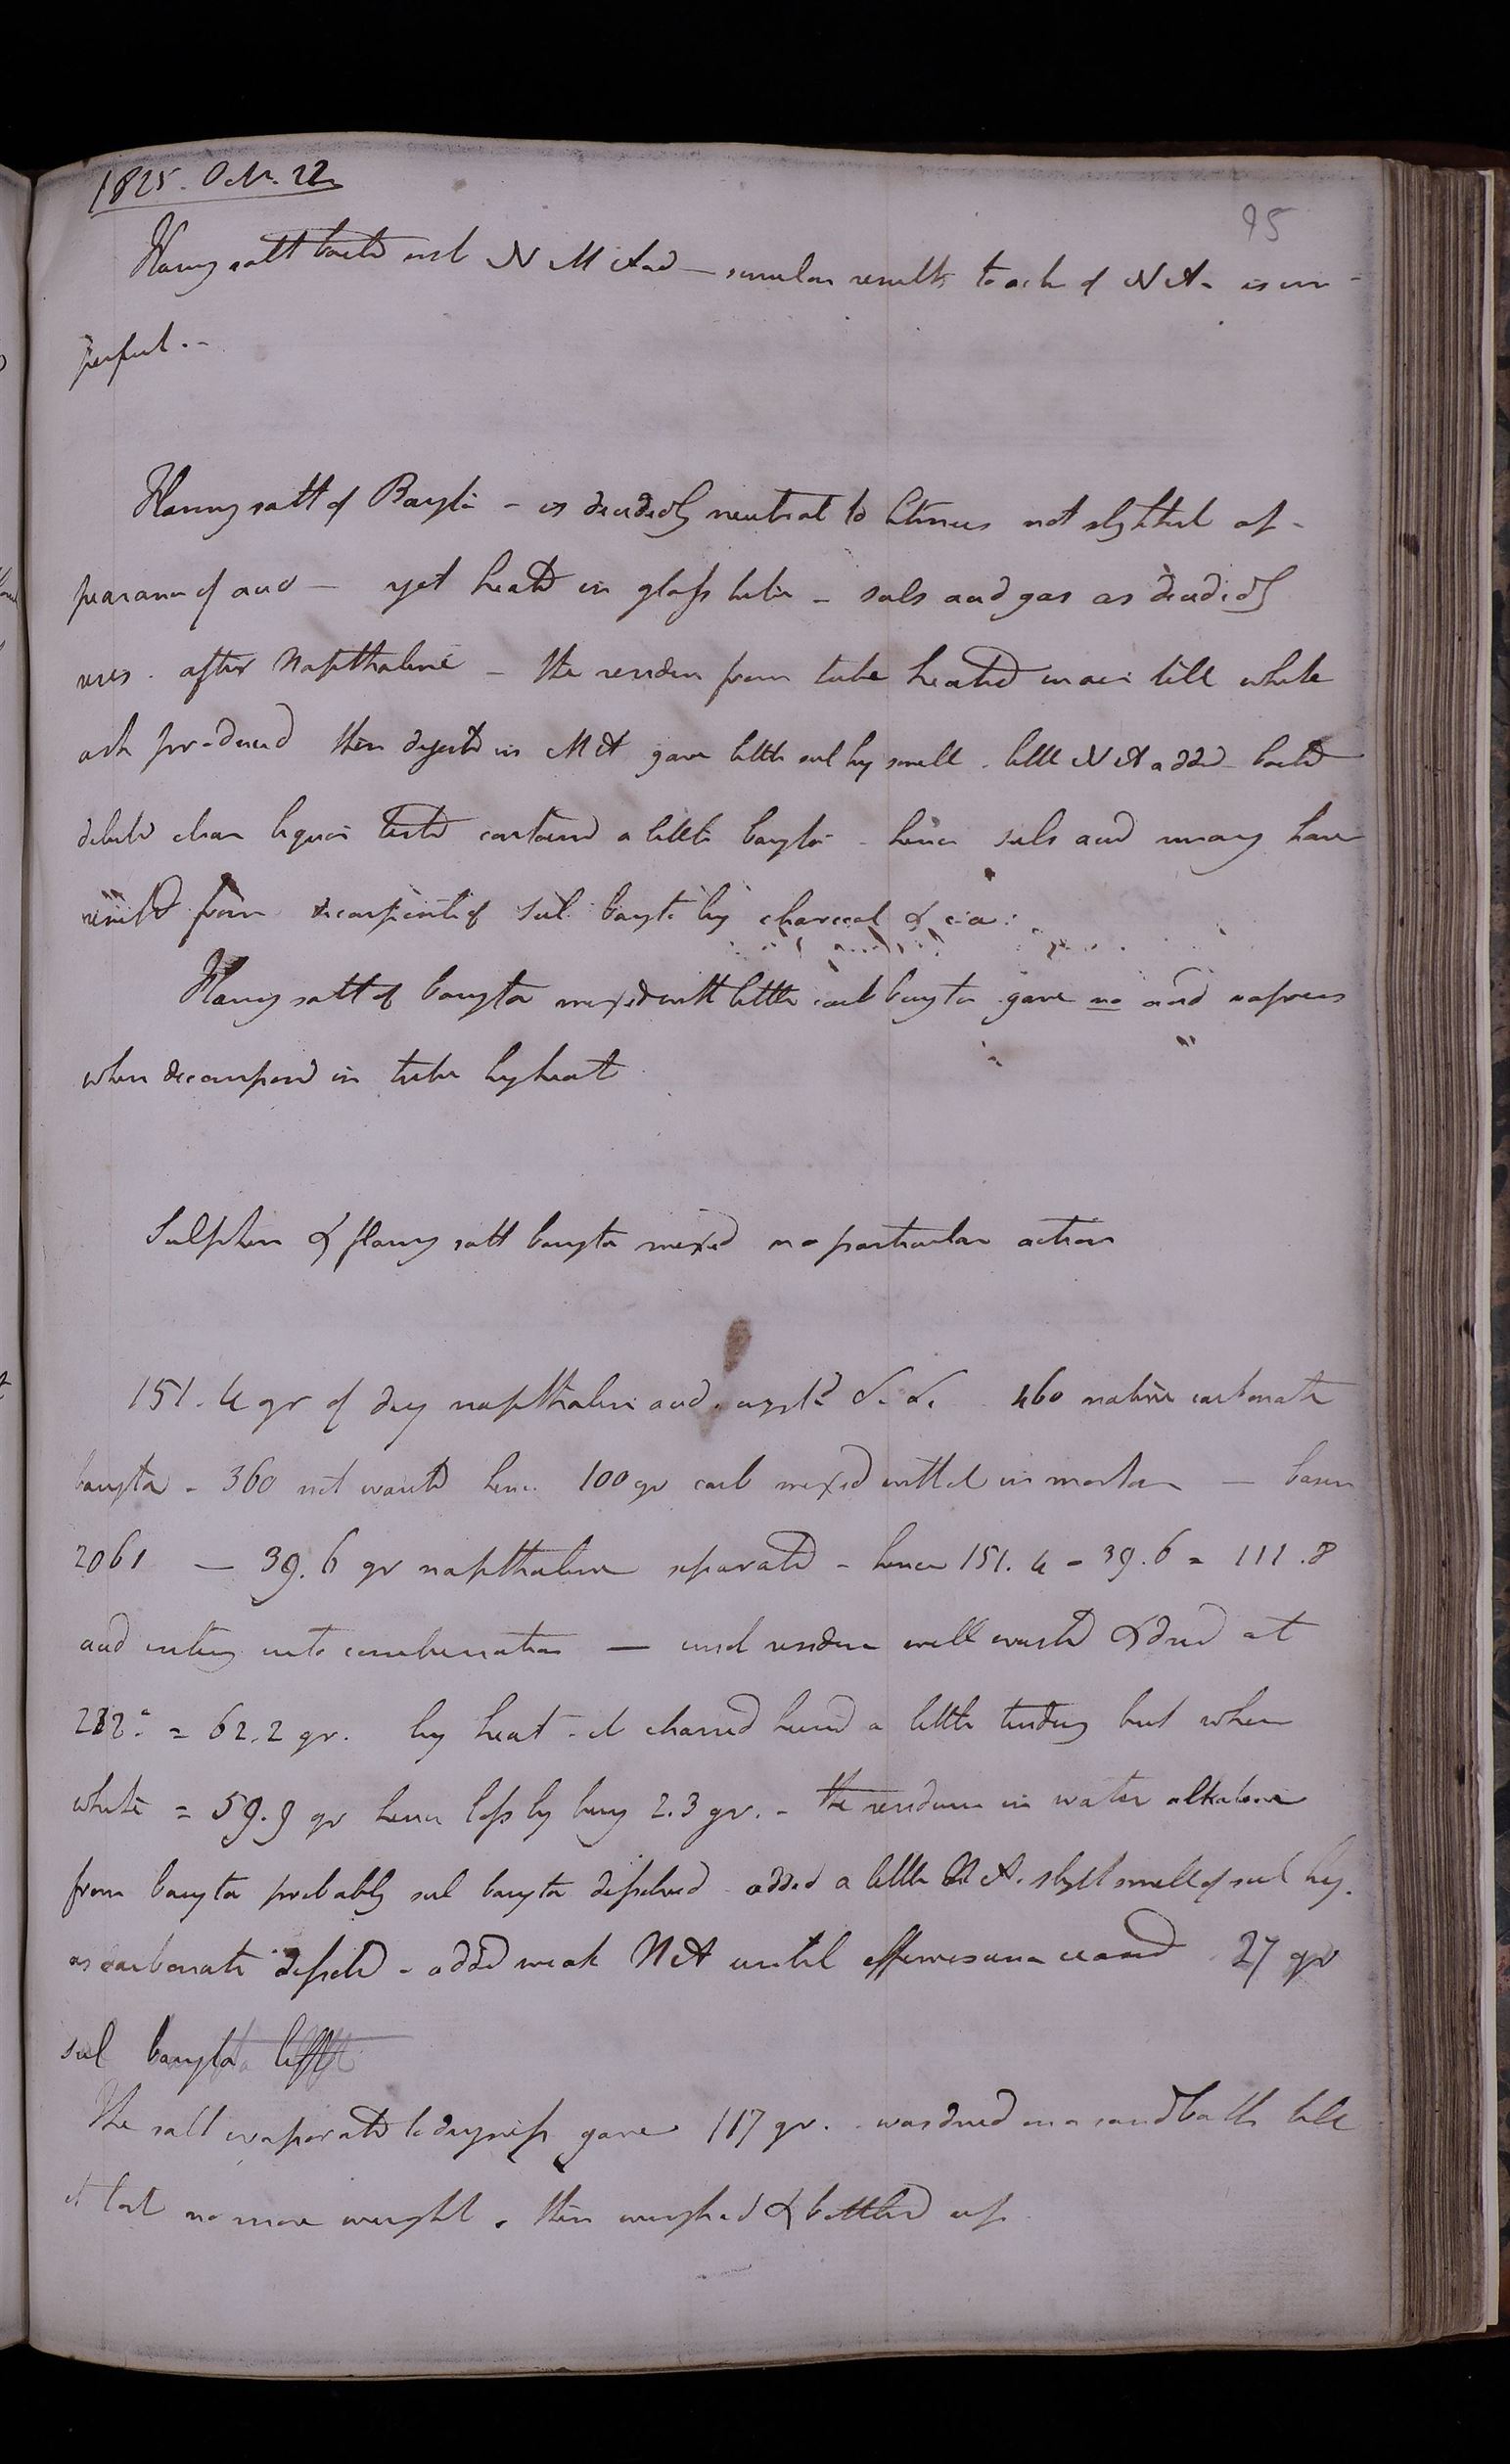 1825. Octr. 22
95
Flamg salt boild with N M Acid — similar results to action of N A - is im-
perfect. -
Flaming salt of Baryta - is decidedly neutral to litmus not slightest ap-
pearance of acid - yet heated in glass tube - suls acid gas as decidedly
rises. after Napthaline - the residue from tube heated in air till white
ash produced then digested in M A gave little sul hy smell. little N A added boiled
diluted clear liquor tested contained a little baryta - hence suls acid may have
resulted from decomposit of Sul baryta by charcoal &c &c:
Flamg salt of baryta mixed with little carb baryta gave no acid vapours
when decomposed in tube by heat
Sulphur & flamg salt baryta mixed no particular action
151.4 gr of dry napthaline acid . 460 native carbonate
baryta - 360 not wanted hence 100 gr carb mixed with it in mortar — basin
2061 — 39.6 gr napthaline separated - hence 151.4 - 39.6 = 111.8
acid entering into combination — insol residue well washed & dried at
212° = 62.2 gr. by heat it charred burnd a little tindery but when
white = 59.9 gr hence loss by burg 2.3 gr. - the residuum in water alkaline
from baryta probably sul baryta dissolved added a little N A. slight smell of sul hy.
as carbonate dissolvd - added weak N A until effervescence ceased 27 gr
sul baryta left
The salt evaporated to dryness gave 117 gr. - was dried on a sand bath till
it lost no more weight. then weighed & bottled up